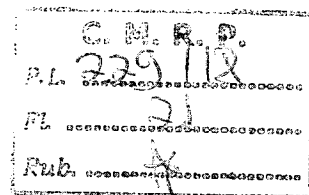 C. M. R. P.
P.L. 229 112
Fl. 21
Rub.